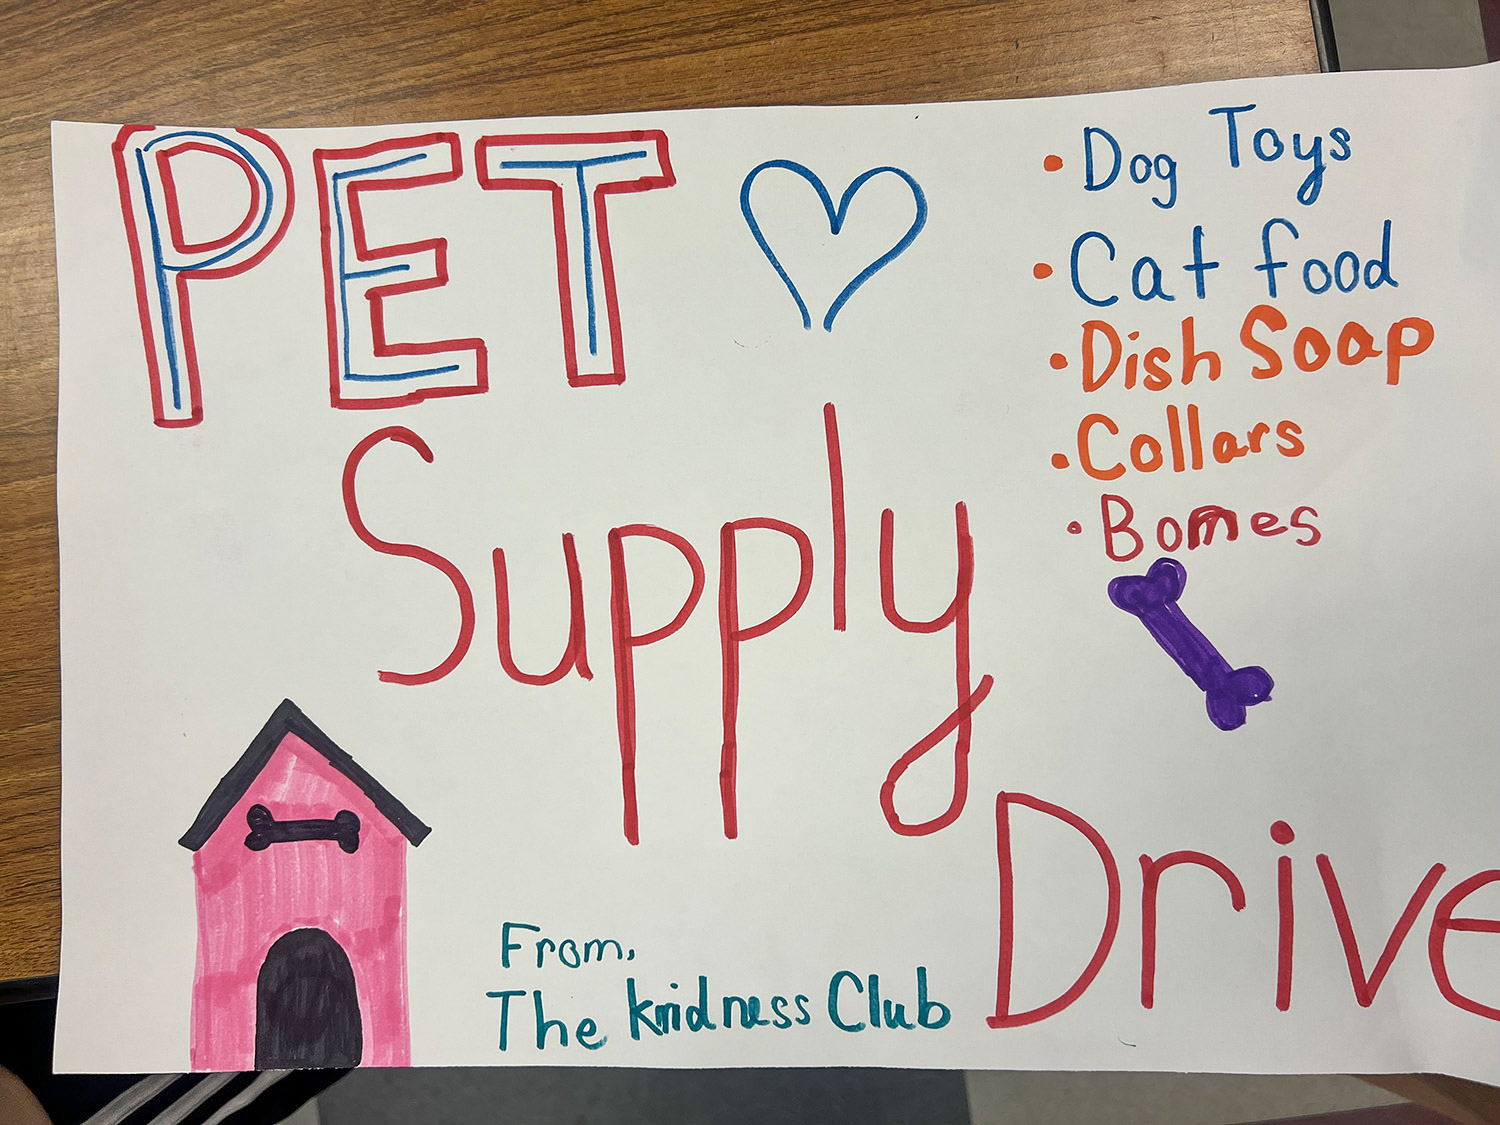 PET
Supply
Drive
• Dog Toys
• Cat food
• Dish Soap
• Collars
• Bomes
From,
The kridness Club